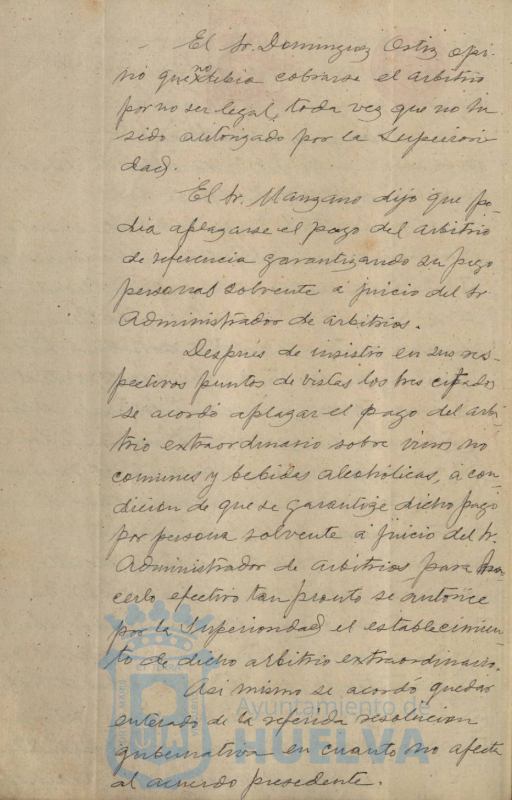 El Sr. Dominguez Ostiz opi-
nó que no debia cobrarse el arbitrio
por no ser legal, toda vez que no ha
sido autorizado por la Superiori
dad.
El Sr. Manzano dijo que po-
dia aplazarse el pago del arbitrio
de referencia garantizando su pago
personas solvente á juicio del Sr
Administrador de arbitrios.
Después de insistir en sus res-
pectivos puntos de vistas los tres citados
se acordó aplazar el pago del arbi
trio extraordinario sobre vinos no
comunes y bebidas alcohólicas, á con-
dicion de que se garantize dicho pago
por persona solvente á juicio del Sr.
Administrador de arbitrios para ha-
cerlo efectivo tan pronto se autorice
por la Superioridad el establecimien-
to de dicho arbitrio extraordinario.
Asi mismo se acordó quedar
enterado de la referida resolucion
gubernativa en cuanto no afecta
al acuerdo presedente.
Ayuntamiento de
HUELVA